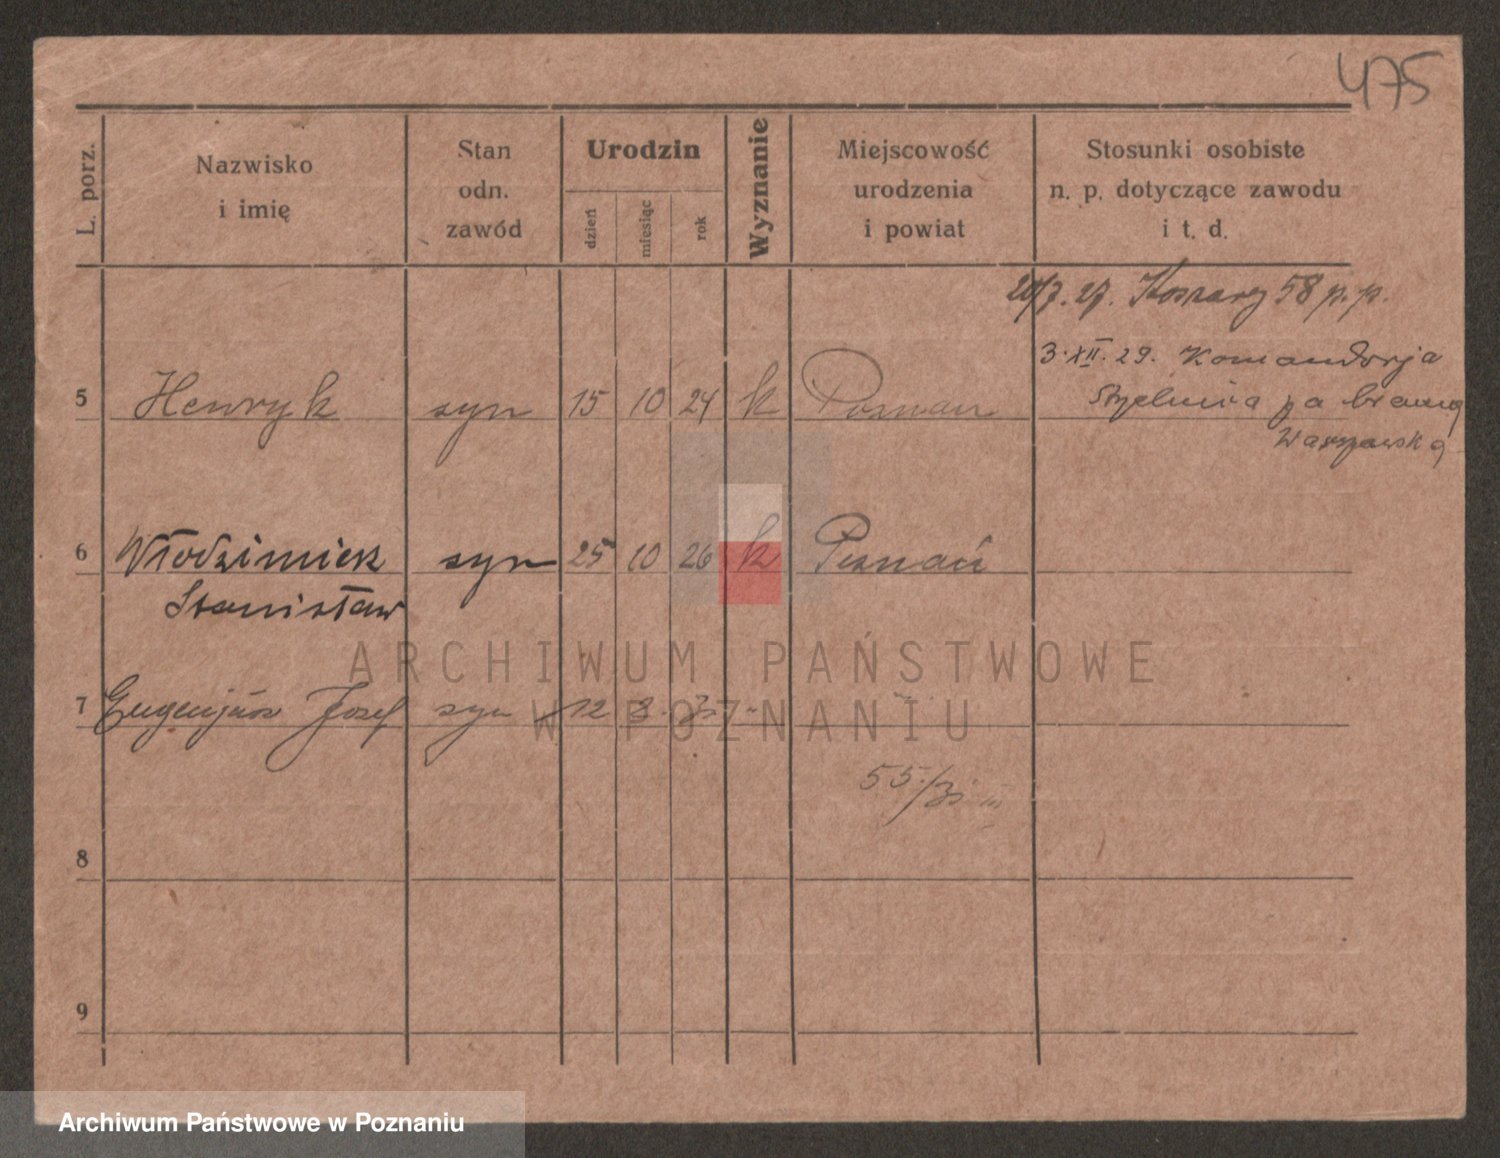 475
L. porz.
Nazwisko
i imię
Stan
odn.
zawód
Urodzin
dzień
miesiąc
rok
Wyznanie
Miejscowość
urodzenia
i powiat
Stosunki osobiste
n. p. dotyczące zawodu
i t. d.
7.27. Koszary 58 p.p.
3.XII.29. Komandorja
Strzelnica za bramą
Warszawską
5 Henryk syn 15 10 24 k Poznan
6 Włodzimierz syn 25 10 26 k Poznań
Stanisław
7 Eugenjusz Józef syn 12 3. 31 "
ARCHIWUM PAŃSTWOWE
W POZNANIU
55/31 III
8
9
Archiwum Państwowe w Poznaniu